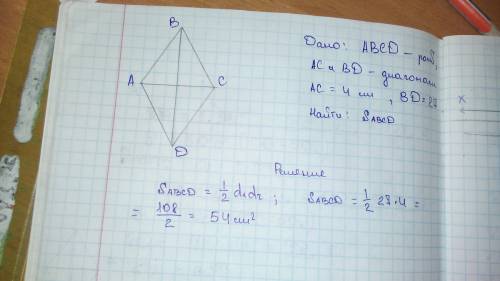 B
A
C
D
Дано: ABCD – ромб,
AC и BD – диагонали
AC = 4 см, BD = 27
Найти: S_ABCD
Решение
S_ABCD = 1/2 d₁d₂; S_ABCD = 1/2 27·4 =
= 108/2 = 54 см²
x